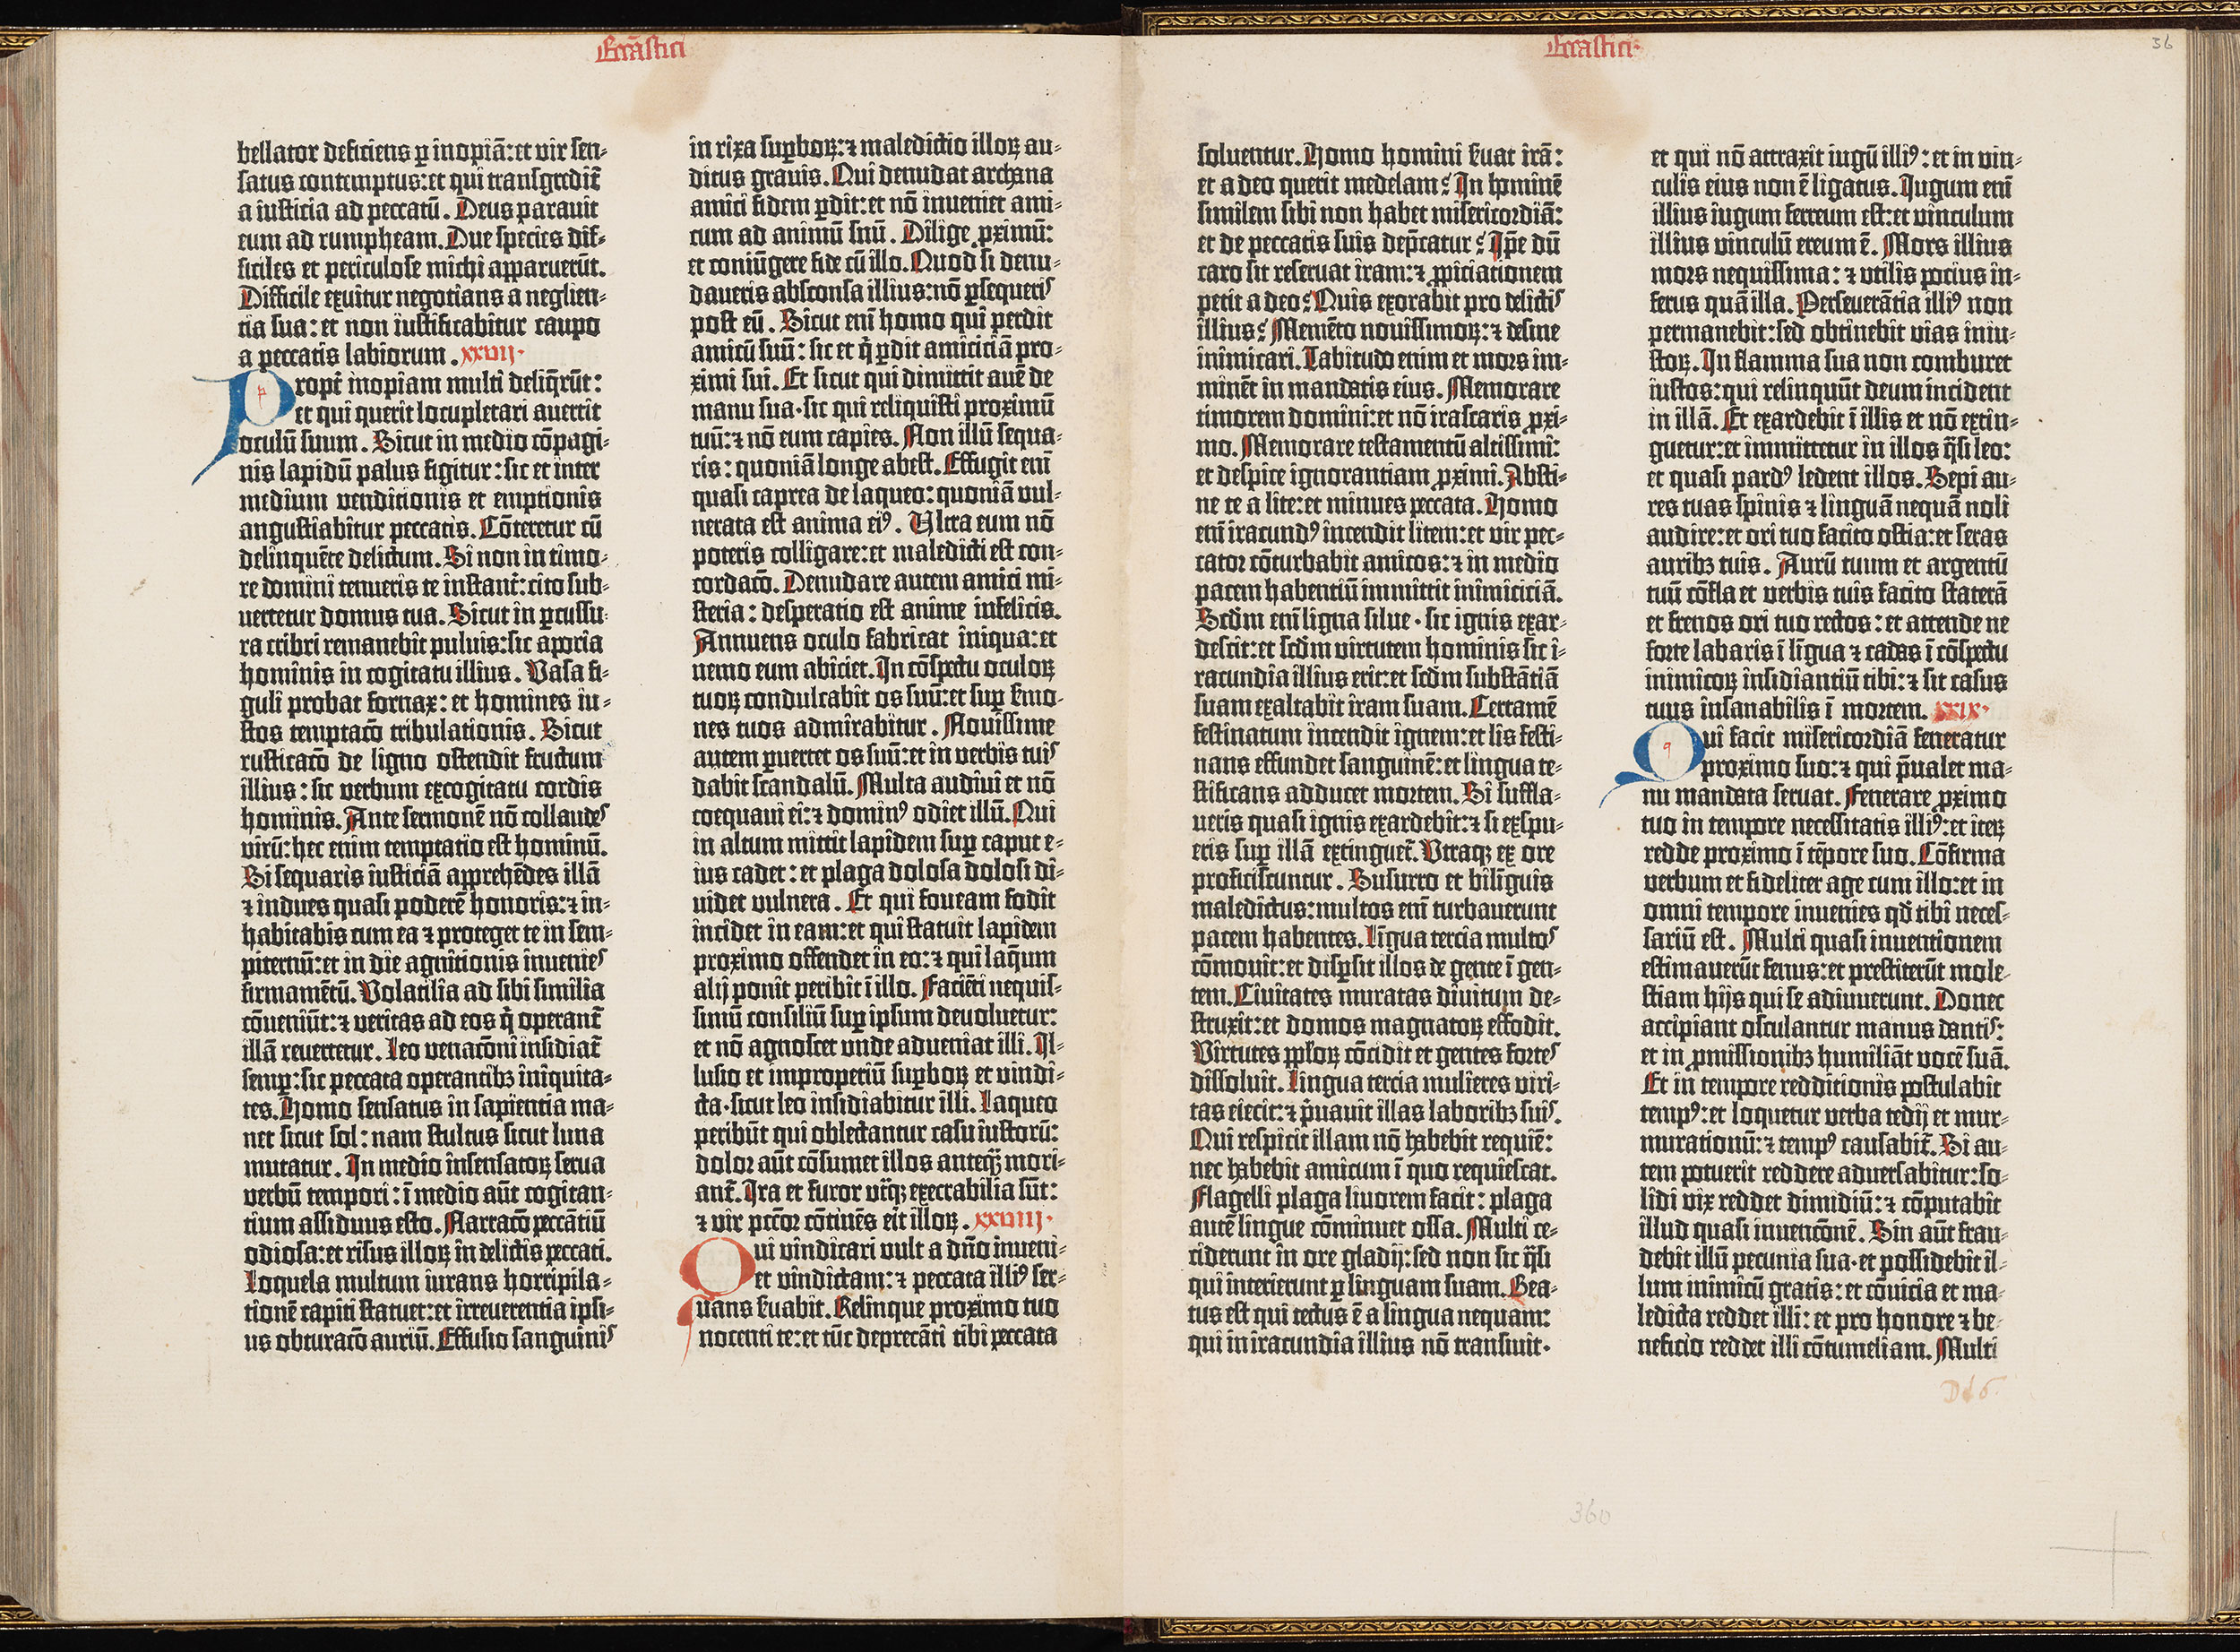 Ecc̄astici
bellator deficiens ꝑ inopiā: et vir sen-
satus contemptus: et qui transgredit̄
a iusticia ad peccatū. Deus parauit
eum ad rumpheam. Due species dif-
ficiles et periculose michi apparuerūt.
Difficile exuitur negotians a neglien-
tia sua: et non iustificabitur caupo
a peccatis labiorum. xxvij·
Propt̄ inopiam multi deliq̄rūt:
et qui querit locupletari auertit
oculū suum. Sicut in medio cōpagi-
nis lapidū palus figitur: sic et inter
medium venditionis et emptionis
angustiabitur peccatis. Cōteretur cū
delinquēte delictum. Si non in timo-
re domini tenueris te instant̄: cito sub-
uertetur domus tua. Sicut in ꝑcussu-
ra cribri remanebit puluis: sic aporia
hominis in cogitatu illius. Vasa fi-
guli probat fornax: et homines iu-
stos temptacō tribulationis. Sicut
rusticacō de ligno ostendit fructum
illius: sic verbum excogitatu cordis
hominis. Ante sermonē nō collaudes
virū: hec enim temptatio est hominū.
Si sequaris iusticiā apprehēdes illā
⁊ indues quasi poderē honoris: ⁊ in-
habitabis cum ea ⁊ proteget te in sem-
piternū: et in die agnitionis inuenies
firmamētū. Volatilia ad sibi similia
cōueniūt: ⁊ veritas ad eos q̄ operant̄
illā reuertetur. Leo venacōni insidiat̄
semꝑ: sic peccata operantibꝫ iniquita-
tes. Homo sensatus in sapientia ma-
net sicut sol: nam stultus sicut luna
mutatur. In medio insensatoꝝ serua
verbū tempori: ī medio aūt cogitan-
tium assiduus esto. Narracō peccātiū
odiosa: et risus illoꝝ in delictis peccati.
Loquela multum iurans horripila-
tionē capiti statuet: et irreuerentia ipsi-
us obturacō auriū. Effusio sanguinis
in rixa suꝑboꝝ: ⁊ maledictio illoꝝ au-
ditus grauis. Qui denudat archana
amici fidem ꝑdit: et nō inueniet ami-
cum ad animū suū. Dilige ꝓximū:
et coniūgere fide cū illo. Quod si denu-
daueris absconsa illius: nō ꝑsequeris
post eū. Sicut enī homo qui perdit
amicū suū: sic et q̄ ꝑdit amiciciā pro-
ximi sui. Et sicut qui dimittit auē de
manu sua· sic qui reliquisti proximū
tuū: ⁊ nō eum capies. Non illū sequa-
ris: quoniā longe abest. Effugit enī
quasi caprea de laqueo: quoniā vul-
nerata est anima eiꝰ. Vltra eum nō
poteris colligare: et maledicti est con-
cordacō. Denudare autem amici mi-
steria: desperatio est anime infelicis.
Annuens oculo fabricat iniqua: et
nemo eum abiciet. In cōspectu oculoꝝ
tuoꝝ condulcabit os suū: et suꝑ ẜmo-
nes tuos admirabitur. Nouissime
autem ꝑuertet os suū: et in verbis tuis
dabit scandalū. Multa audiui et nō
coequaui ei: ⁊ dominꝰ odiet illū. Qui
in altum mittit lapidem suꝑ caput e-
ius cadet: et plaga dolosa dolosi di-
uidet vulnera. Et qui foueam fodit
incidet in eam: et qui statuit lapidem
proximo offendet in eo: ⁊ qui laq̄um
alij ponit peribit ī illo. Faciēti nequis-
simū consiliū suꝑ ipsum deuoluetur:
et nō agnoscet vnde adueniat illi. Il-
lusio et improperiū suꝑboꝝ et vindi-
cta· sicut leo insidiabitur illi. Laqueo
peribūt qui oblectantur casu iustorū:
dolor aūt cōsumet illos anteq̄ꝫ mori-
ant̄. Ira et furor vt̄qꝫ execrabilia sūt:
⁊ vir pccōr cōtinēs eīt illoꝝ. xxviij·
Qui vindicari vult a dn̄o inueni-
et vindictam: ⁊ peccata illiꝰ ser-
uans ẜuabit. Relinque proximo tuo
nocenti te: et tūc deprecāti tibi peccata
Ecc̄astici·
36
soluentur. Homo homini ẜuat irā:
et a deo querit medelam? In hominē
similem sibi non habet misericordiā:
et de peccatis suis dep̄catur? Ip̄e dū
caro sit reseruat iram: ⁊ ꝓpiciationem
petit a deo? Quis exorabit pro delictis
illius? Memēto nouissimoꝝ: ⁊ desine
inimicari. Tabitudo enim et mors im-
minēt in mandatis eius. Memorare
timorem domini: et nō irascaris ꝓxi-
mo. Memorare testamentū altissimi:
et despice ignorantiam ꝓximi. Absti-
ne te a lite: et minues peccata. Homo
enī iracundꝰ incendit litem: et vir pec-
cator cōturbabit amicos: ⁊ in medio
pacem habentiū immittit inimiciciā.
Scd̄m enī ligna silue· sic ignis exar-
descit: et scd̄m virtutem hominis sic i-
racundia illius erit: et scd̄m substātiā
suam exaltabit iram suam. Certamē
festinatum incendit ignem: et lis festi-
nans effundet sanguinē: et lingua te-
stificans adducet mortem. Si suffla-
ueris quasi ignis exardebit: ⁊ si exspu-
eris suꝑ illā extinguet̄. Vtraqꝫ ex ore
proficiscuntur. Susurro et biliguis
maledictus: multos enī turbauerunt
pacem habentes. Līgua tercia multos
cōmouit: et disꝑsit illos de gente ī gen-
tem. Ciuitates muratas diuitum de-
struxit: et domos magnatoꝝ effodit.
Virtutes ppl̄oꝝ cōcidit et gentes fortes
dissoluit. Lingua tercia mulieres viri-
tas eiecit: ⁊ p̄uauit illas laboribꝫ suis.
Qui respicit illam nō habebit requiē:
nec habebit amicum ī quo requiescat.
Flagelli plaga liuorem facit: plaga
autē lingue cōminuet ossa. Multi ce-
ciderunt in ore gladij: sed non sic q̄si
qui interierunt ꝑ linguam suam. Bea-
tus est qui tectus ē a lingua nequam:
qui in iracundia illius nō transiuit·
et qui nō attraxit iugū illiꝰ: et in vin-
culis eius non ē ligatus. Jugum enī
illius iugum ferreum est: et vinculum
illius vinculū ereum ē. Mors illius
mors nequissima: ⁊ vtilis pocius in-
ferus quā illa. Perseuerātia illiꝰ non
permanebit: sed obtinebit vias iniu-
stoꝝ. In flamma sua non comburet
iustos: qui relinquūt deum incident
in illā. Et exardebit ī illis et nō extin-
guetur: et immittetur in illos q̄si leo:
et quasi pardꝰ ledent illos. Sepi au-
res tuas spinis ⁊ linguā nequā noli
audire: et ori tuo facito ostia: et seras
auribꝫ tuis. Aurū tuum et argentū
tuū cōfla et verbis tuis facito staterā
et frenos ori tuo rectos: et attende ne
forte labaris ī līgua ⁊ cadas ī cōspectu
inimicoꝝ insidiantiū tibi: ⁊ sit casus
tuus insanabilis ī mortem. xxix·
Qui facit misericordiā feneratur
proximo suo: ⁊ qui p̄ualet ma-
nu mandata seruat. Fenerare ꝓximo
tuo in tempore necessitatis illiꝰ: et iteꝝ
redde proximo ī tēpore suo. Cōfirma
verbum et fideliter age cum illo: et in
omni tempore inuenies qd̄ tibi neces-
sariū est. Multi quasi inuentionem
estimauerūt fenus: et prestiterūt mole-
stiam hijs qui se adiuuerunt. Donec
accipiant osculantur manus dantis:
et in ꝓmissionibꝫ humiliāt vocē suā.
Et in tempore redditionis postulabit
tempꝰ: et loquetur verba tedij et mur-
murationū: ⁊ tempꝰ causabit̄. Si au-
tem potuerit reddere aduersabitur: so-
lidi vix reddet dimidiū: ⁊ cōputabit
illud quasi inuencōnē. Sin aūt frau-
debit illū pecunia sua· et possidebit il-
lum inimicū gratis: et cōuicia et ma-
ledicta reddet illi: et pro honore ⁊ be-
neficio reddet illi cōtumeliam. Multi
360